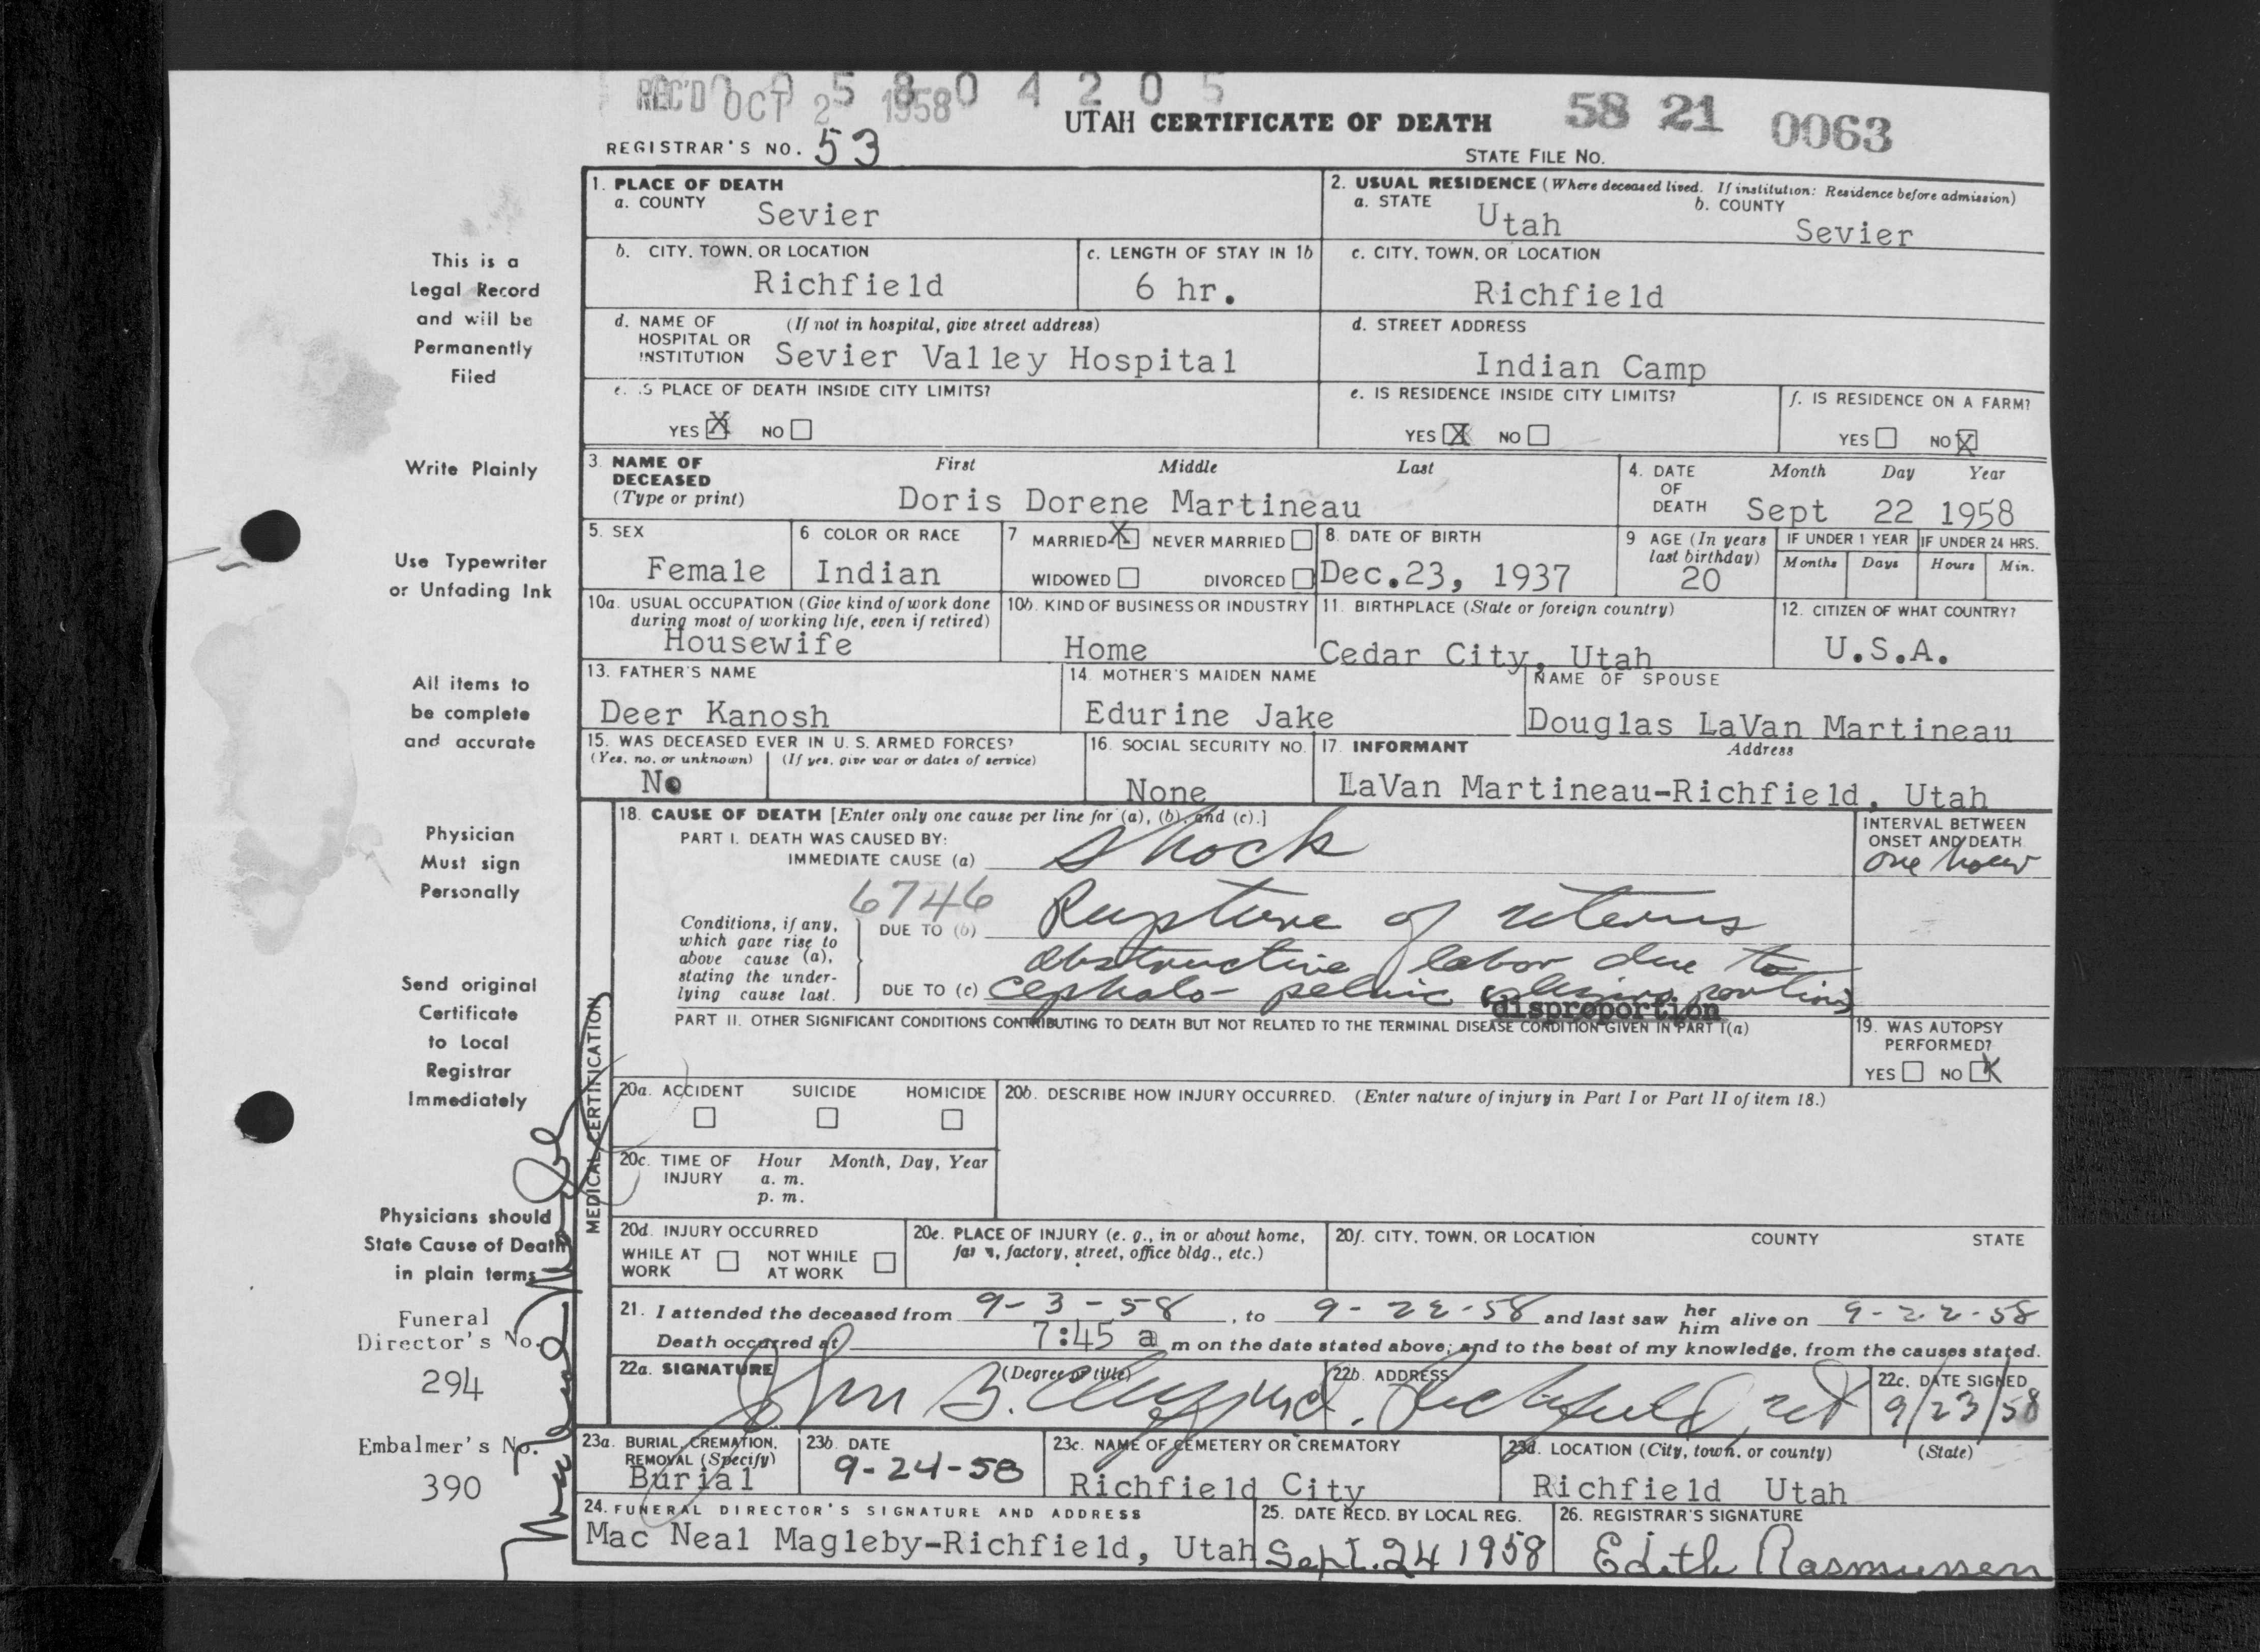 REC'D OCT 2 1958
0 9 5 8 0 4 2 0 5
UTAH CERTIFICATE OF DEATH
58 21 0063
REGISTRAR'S NO. 53
STATE FILE NO.
1. PLACE OF DEATH
a. COUNTY Sevier
2. USUAL RESIDENCE (Where deceased lived. If institution: Residence before admission)
a. STATE Utah b. COUNTY Sevier
b. CITY, TOWN, OR LOCATION Richfield
c. LENGTH OF STAY IN 1b 6 hr.
c. CITY, TOWN, OR LOCATION Richfield
d. NAME OF HOSPITAL OR INSTITUTION (If not in hospital, give street address) Sevier Valley Hospital
d. STREET ADDRESS Indian Camp
e. IS PLACE OF DEATH INSIDE CITY LIMITS?
YES X NO
e. IS RESIDENCE INSIDE CITY LIMITS?
YES X NO
f. IS RESIDENCE ON A FARM?
YES NO X
3. NAME OF DECEASED (Type or print) First Middle Last
Doris Dorene Martineau
4. DATE OF DEATH Month Day Year
Sept 22 1958
5. SEX Female
6 COLOR OR RACE Indian
7 MARRIED X NEVER MARRIED
WIDOWED DIVORCED
8. DATE OF BIRTH Dec.23, 1937
9 AGE (In years last birthday) 20
IF UNDER 1 YEAR Months Days
IF UNDER 24 HRS. Hours Min.
10a. USUAL OCCUPATION (Give kind of work done during most of working life, even if retired) Housewife
10b. KIND OF BUSINESS OR INDUSTRY Home
11. BIRTHPLACE (State or foreign country) Cedar City, Utah
12. CITIZEN OF WHAT COUNTRY? U.S.A.
13. FATHER'S NAME Deer Kanosh
14. MOTHER'S MAIDEN NAME Edurine Jake
NAME OF SPOUSE Douglas LaVan Martineau
15. WAS DECEASED EVER IN U. S. ARMED FORCES?
(Yes, no, or unknown) (If yes, give war or dates of service)
No
16. SOCIAL SECURITY NO. None
17. INFORMANT Address
LaVan Martineau-Richfield, Utah
MEDICAL CERTIFICATION
18. CAUSE OF DEATH [Enter only one cause per line for (a), (b), and (c).]
PART I. DEATH WAS CAUSED BY:
IMMEDIATE CAUSE (a) Shock
INTERVAL BETWEEN ONSET AND DEATH
one hour
6746
Conditions, if any, which gave rise to above cause (a), stating the underlying cause last.
DUE TO (b) Rupture of uterus
obstructive labor due to
DUE TO (c) cephalo-pelvic
disproportion
PART II. OTHER SIGNIFICANT CONDITIONS CONTRIBUTING TO DEATH BUT NOT RELATED TO THE TERMINAL DISEASE CONDITION GIVEN IN PART I(a)
19. WAS AUTOPSY PERFORMED?
YES NO X
20a. ACCIDENT SUICIDE HOMICIDE
20b. DESCRIBE HOW INJURY OCCURRED. (Enter nature of injury in Part I or Part II of item 18.)
20c. TIME OF INJURY Hour Month, Day, Year
a. m.
p. m.
20d. INJURY OCCURRED
WHILE AT WORK NOT WHILE AT WORK
20e. PLACE OF INJURY (e. g., in or about home, farm, factory, street, office bldg., etc.)
20f. CITY, TOWN, OR LOCATION COUNTY STATE
21. I attended the deceased from 9-3-58, to 9-22-58 and last saw her him alive on 9-22-58
Death occurred at 7:45 a m on the date stated above; and to the best of my knowledge, from the causes stated.
22a. SIGNATURE (Degree or title)
22b. ADDRESS Richfield, Ut
22c. DATE SIGNED 9/23/58
23a. BURIAL, CREMATION, REMOVAL (Specify) Burial
23b. DATE 9-24-58
23c. NAME OF CEMETERY OR CREMATORY Richfield City
23d. LOCATION (City, town, or county) (State) Richfield Utah
24. FUNERAL DIRECTOR'S SIGNATURE AND ADDRESS
Mac Neal Magleby-Richfield, Utah
25. DATE RECD. BY LOCAL REG. Sept. 24 1958
26. REGISTRAR'S SIGNATURE Edith Rasmussen
This is a
Legal Record
and will be
Permanently
Filed
Write Plainly
Use Typewriter
or Unfading Ink
All items to
be complete
and accurate
Physician
Must sign
Personally
Send original
Certificate
to Local
Registrar
Immediately
Physicians should
State Cause of Death
in plain terms
Funeral
Director's No.
294
Embalmer's No.
390